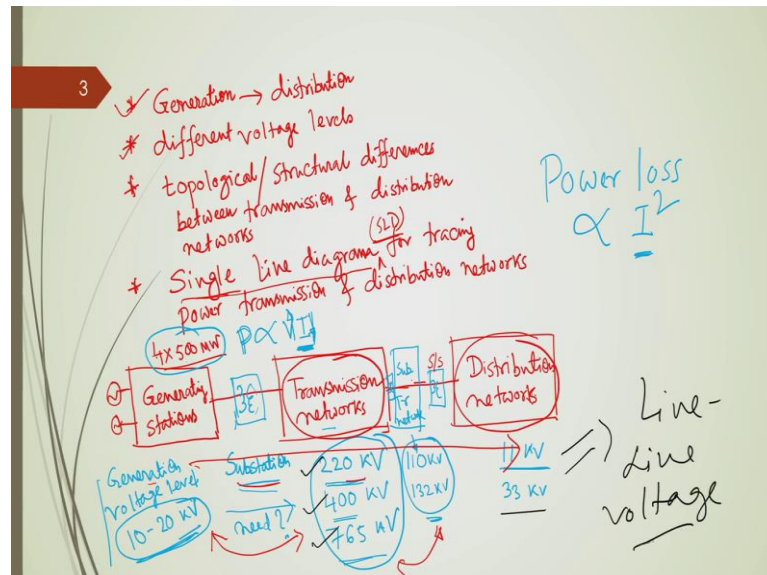 3
Generation → distribution
* different voltage levels
* topological/structural differences
between transmission & distribution
networks
(SLD)
* Single line diagram for tracing
Power transmission & distribution networks
Power loss
∝ I²
4×500 MW
P∝VI
Generating
stations
Transmission
networks
Sub
Tr
network
S/S
Distribution
networks
Generation
voltage level
10-20 KV
Substation
need?
220 KV
400 KV
765 KV
110KV
132KV
11 KV
33 KV
Line-
Line
voltage